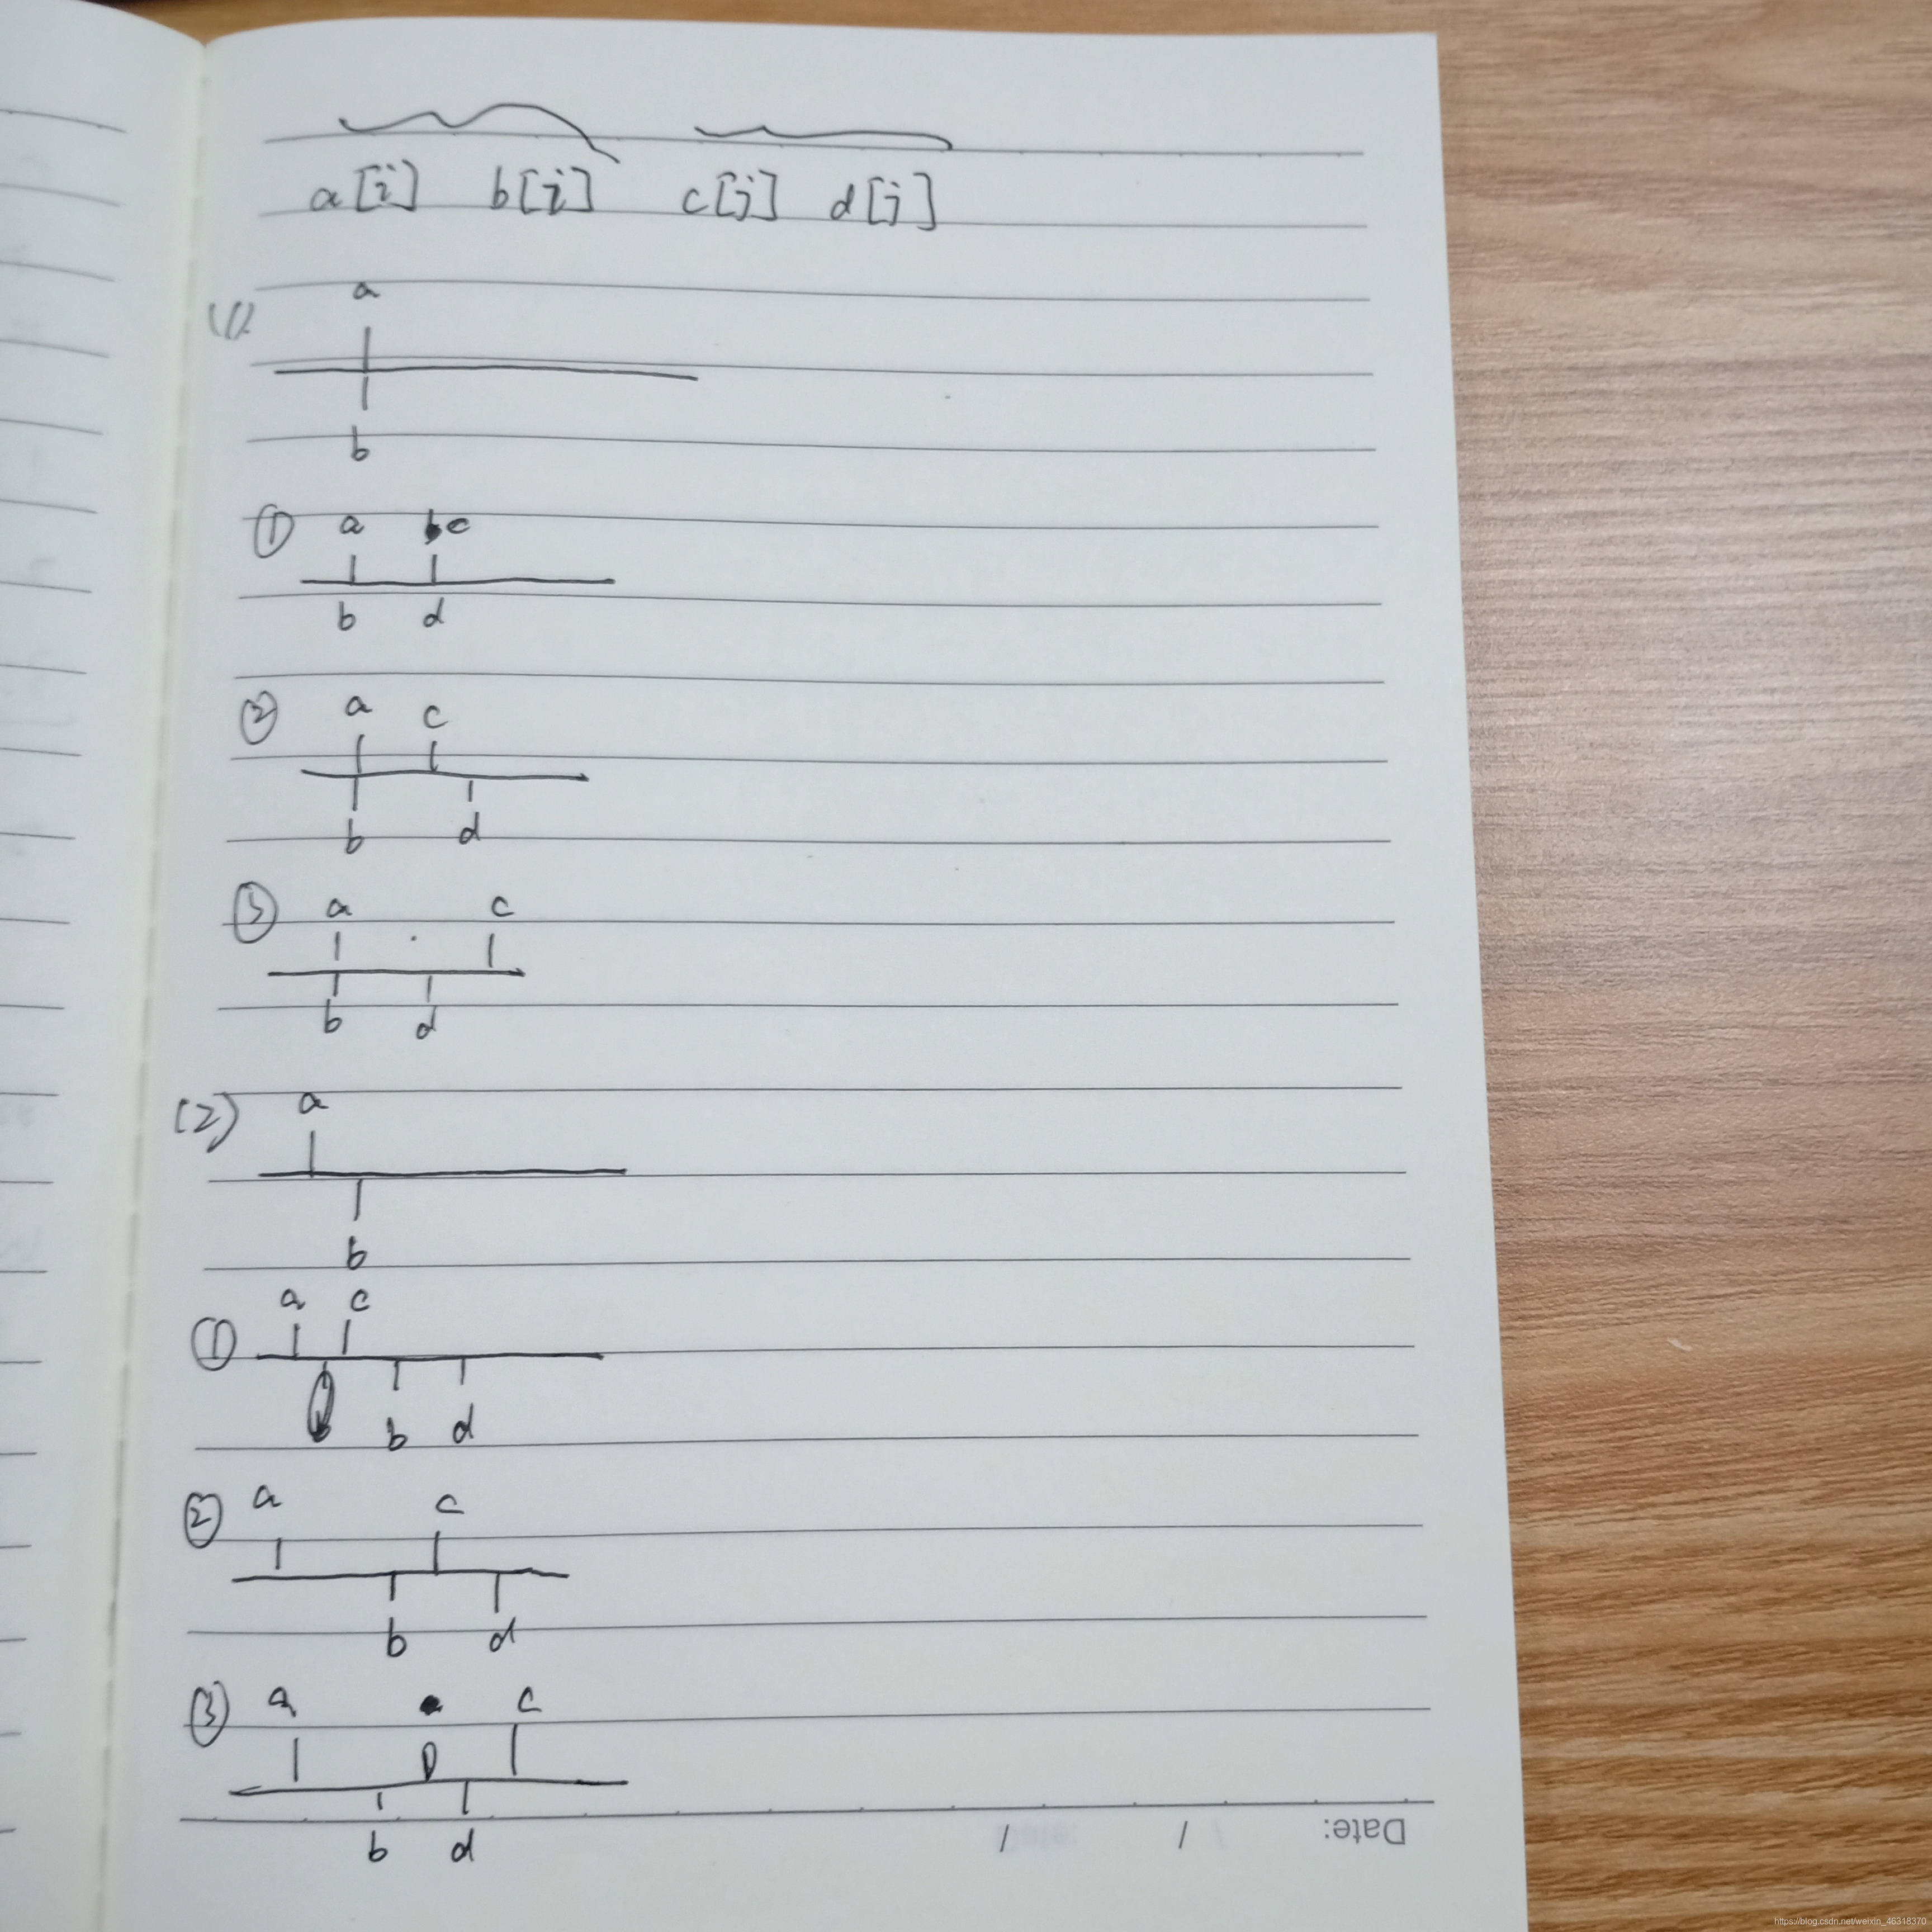 a[i] b[i] c[j] d[j]
(1)
a
b
① a c
b d
② a c
b d
③ a c
b d
(2) a
b
① a c
b d
② a c
b d
③ a c
b d
Date: / /
https://blog.csdn.net/weixin_46318370